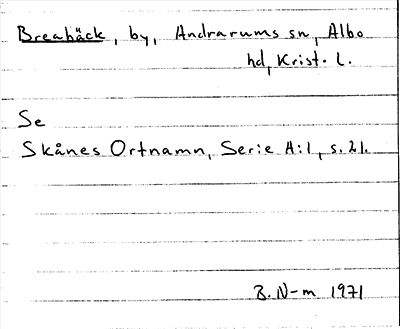 Breabäck, by, Andrarums sn, Albo
hd, Krist. l.
Se
Skånes Ortnamn, Serie A:1, s. 21.
B. N-m 1971